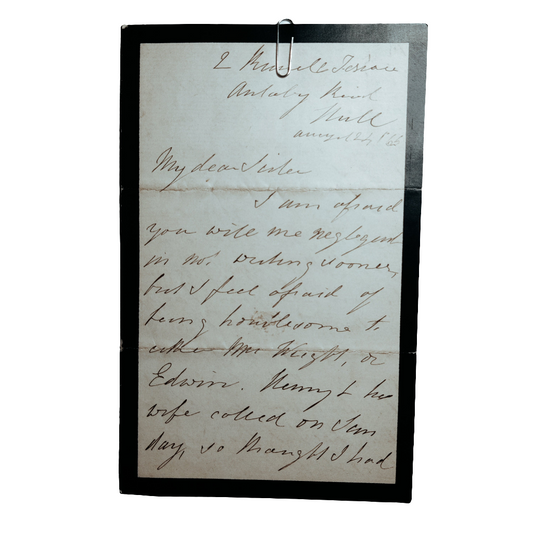 2 Terrace
Anlaby Road
Hull
My dear Sister
I am afraid
you will me neglegent
in not writing sooner,
but I feel afraid of
being troublesome to
either Mr Wright, or
Edwin. Henry & his
wife called on Sun
day, so thought I had